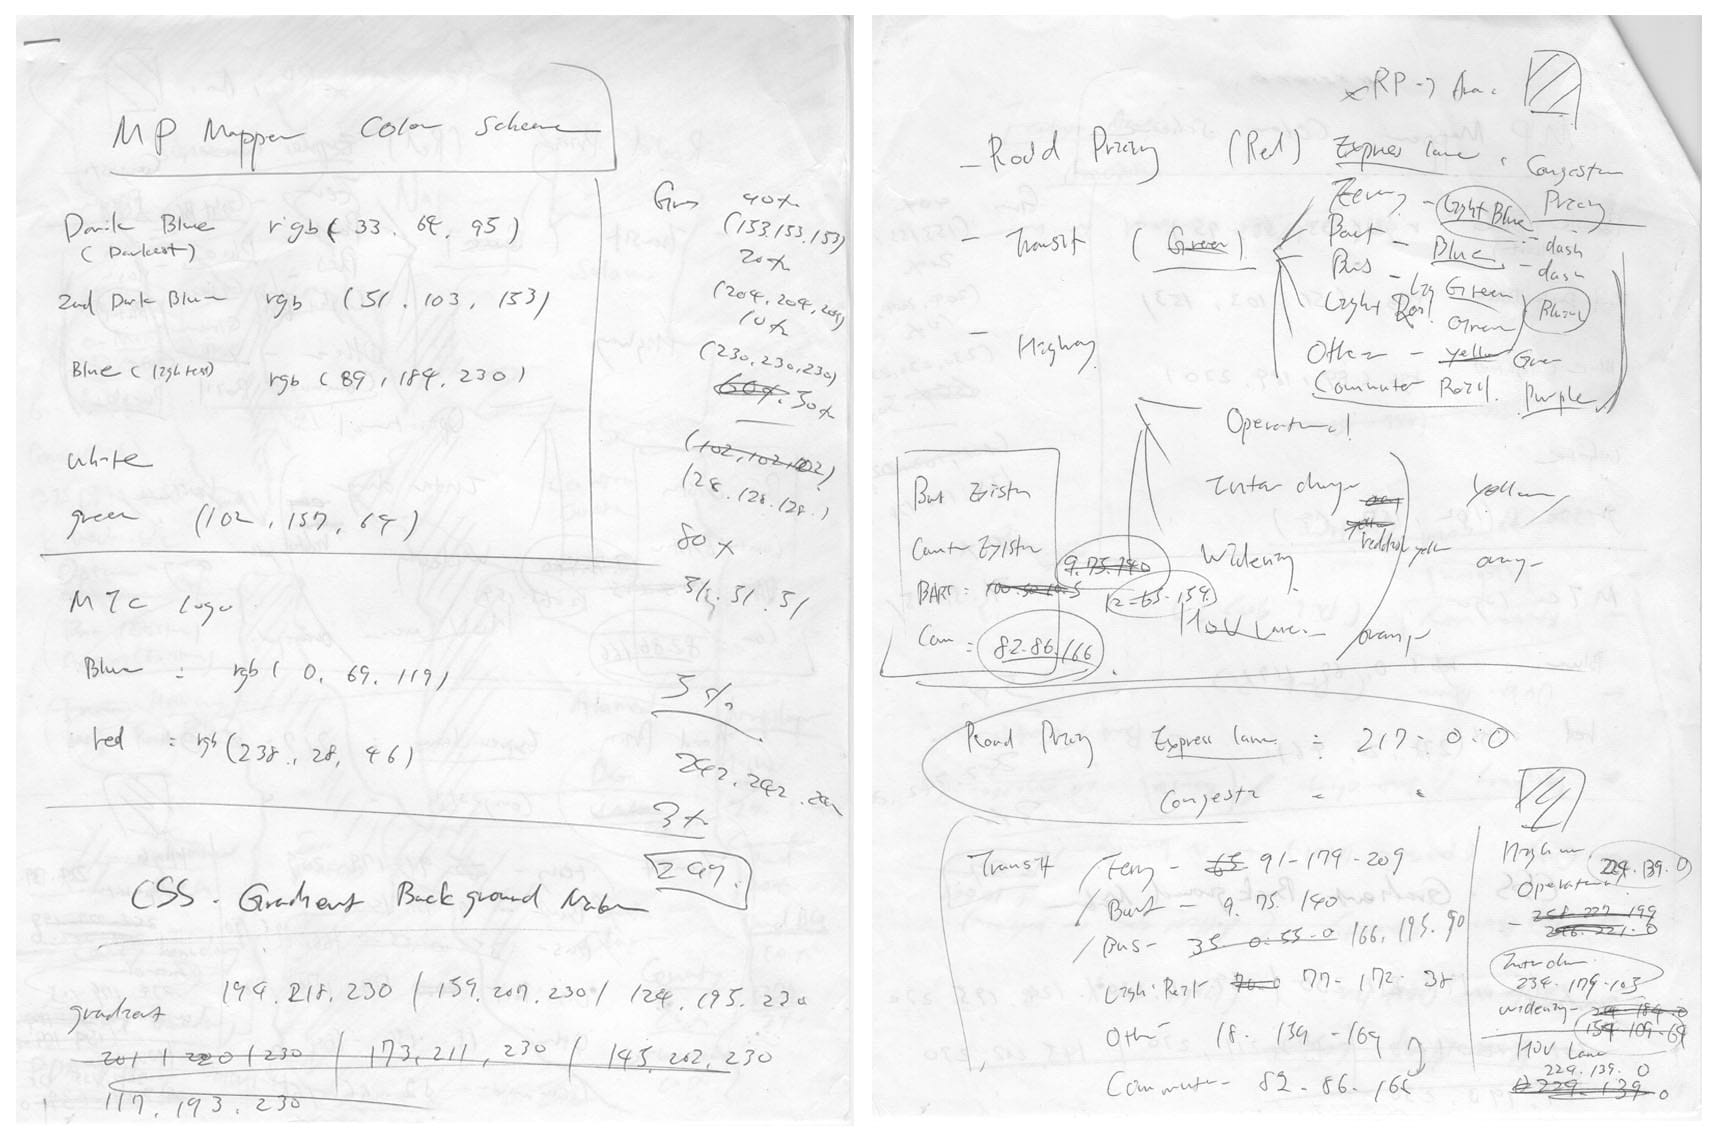 MP Mapper Color Scheme
Dark Blue rgb( 33. 64, 95)
(Darkest)
2nd Dark Blue rgb (51, 103, 153)
Blue (lightest) rgb (89, 184, 230)
white
green (102, 157, 64)
MTC logo
Blue : rgb ( 0, 69, 119)
red : rgb (238, 28, 46)
40%
(153.153.153)
20%
(204, 204, 204)
10%
(230,230,230)
60%. 50%
(102, 102, 102)
(128. 128. 128.)
80%
51. 51. 51
5%
242. 242. 242
3%
249.
CSS - Gradient Background Maker
gradient 194. 218. 230 / 159. 207. 230 / 124. 195. 230
201 / 220 / 230 / 173, 211, 230 / 145. 202. 230
117. 193. 230
RP -> Area.
- Road Pricing (Red) Express lane, Congestion Pricing
- Transit (Green)
Ferry - Light Blue -- dash
Bart - Blue - dash
Bus - Lig Green
Light Rail Green Blue
Other - yellow Green
Commuter Rail. Purple
- Highway
Operational
Interchange yellow
reddish yellow
Widening orange
HOV Lane - orange
Bart Existn
Comm Existn
BART: 100.50.10.5
9.75.140
12-65-139
Com = 82.86.166
Road Pricing Express lane : 217. 0. 0
Congestn " "
Transit / Ferry - 65 91-179-209
/ Bart - 9. 75. 140
/ Bus - 35 0.55-0 166, 195. 90
Light Rail 70-0 77-172-38
Other 18. 139 - 169
Commuter 82-86. 166
Highway 229. 139. 0
Operational
- 258 227 199
246. 221. 0
234. 179-103
widening -
154 109-69
HOV Lane
229. 139. 0
229. 139. 0